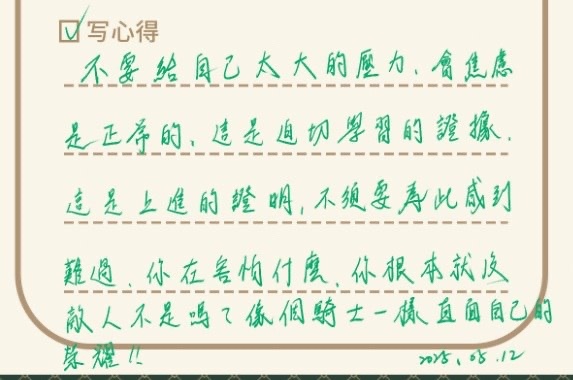 写心得
不要給自己太大的壓力、會焦慮
是正常的、這是迫切學習的證據.
這是上進的證明,不須要為此感到
難過、你在害怕什麼、你根本就沒
敵人不是嗎?像個騎士一樣直面自己的
榮耀!!
2025.05.12